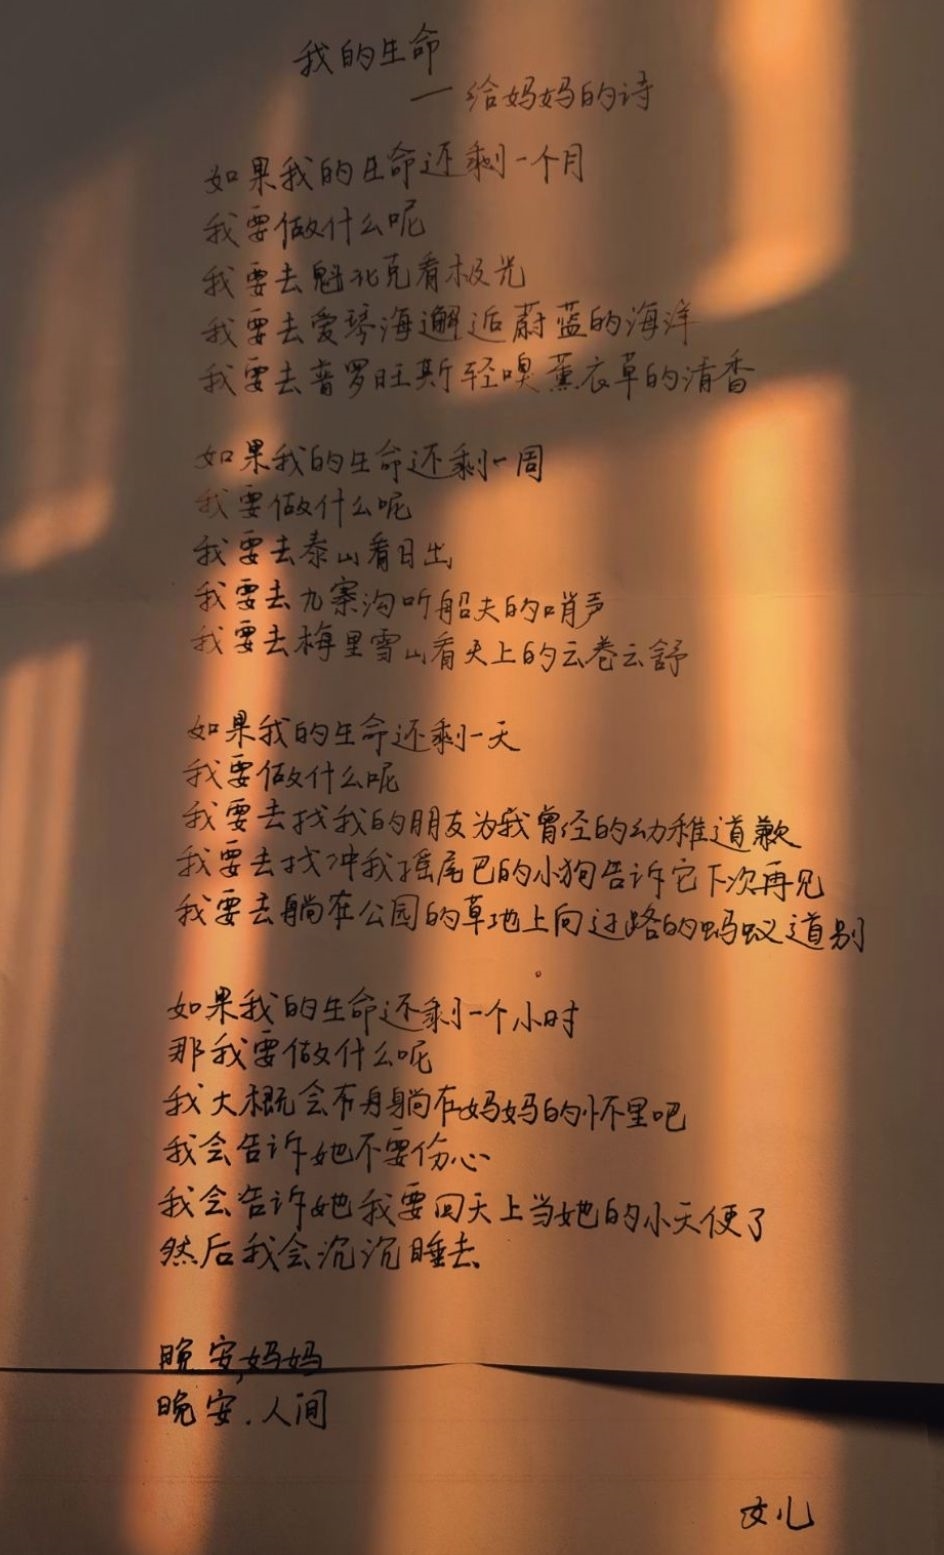 我的生命
一给妈妈的诗
如果我的生命还剩一个月
我要做什么呢
我要去魁北克看极光
我要去爱琴海邂逅蔚蓝的海洋
我要去普罗旺斯轻嗅薰衣草的清香
如果我的生命还剩一周
我要做什么呢
我要去泰山看日出
我要去九寨沟听船夫的哨声
我要去梅里雪山看天上的云卷云舒
如果我的生命还剩一天
我要做什么呢
我要去找我的朋友为我曾经的幼稚道歉
我要去找冲我摇尾巴的小狗告诉它下次再见
我要去躺在公园的草地上向过路的蚂蚁道别
如果我的生命还剩一个小时
那我要做什么呢
我大概会布身躺在妈妈的怀里吧
我会告诉她不要伤心
我会告诉她我要回天上当她的小天使了
然后我会沉沉睡去
晚安,妈妈
晚安.人间
女儿